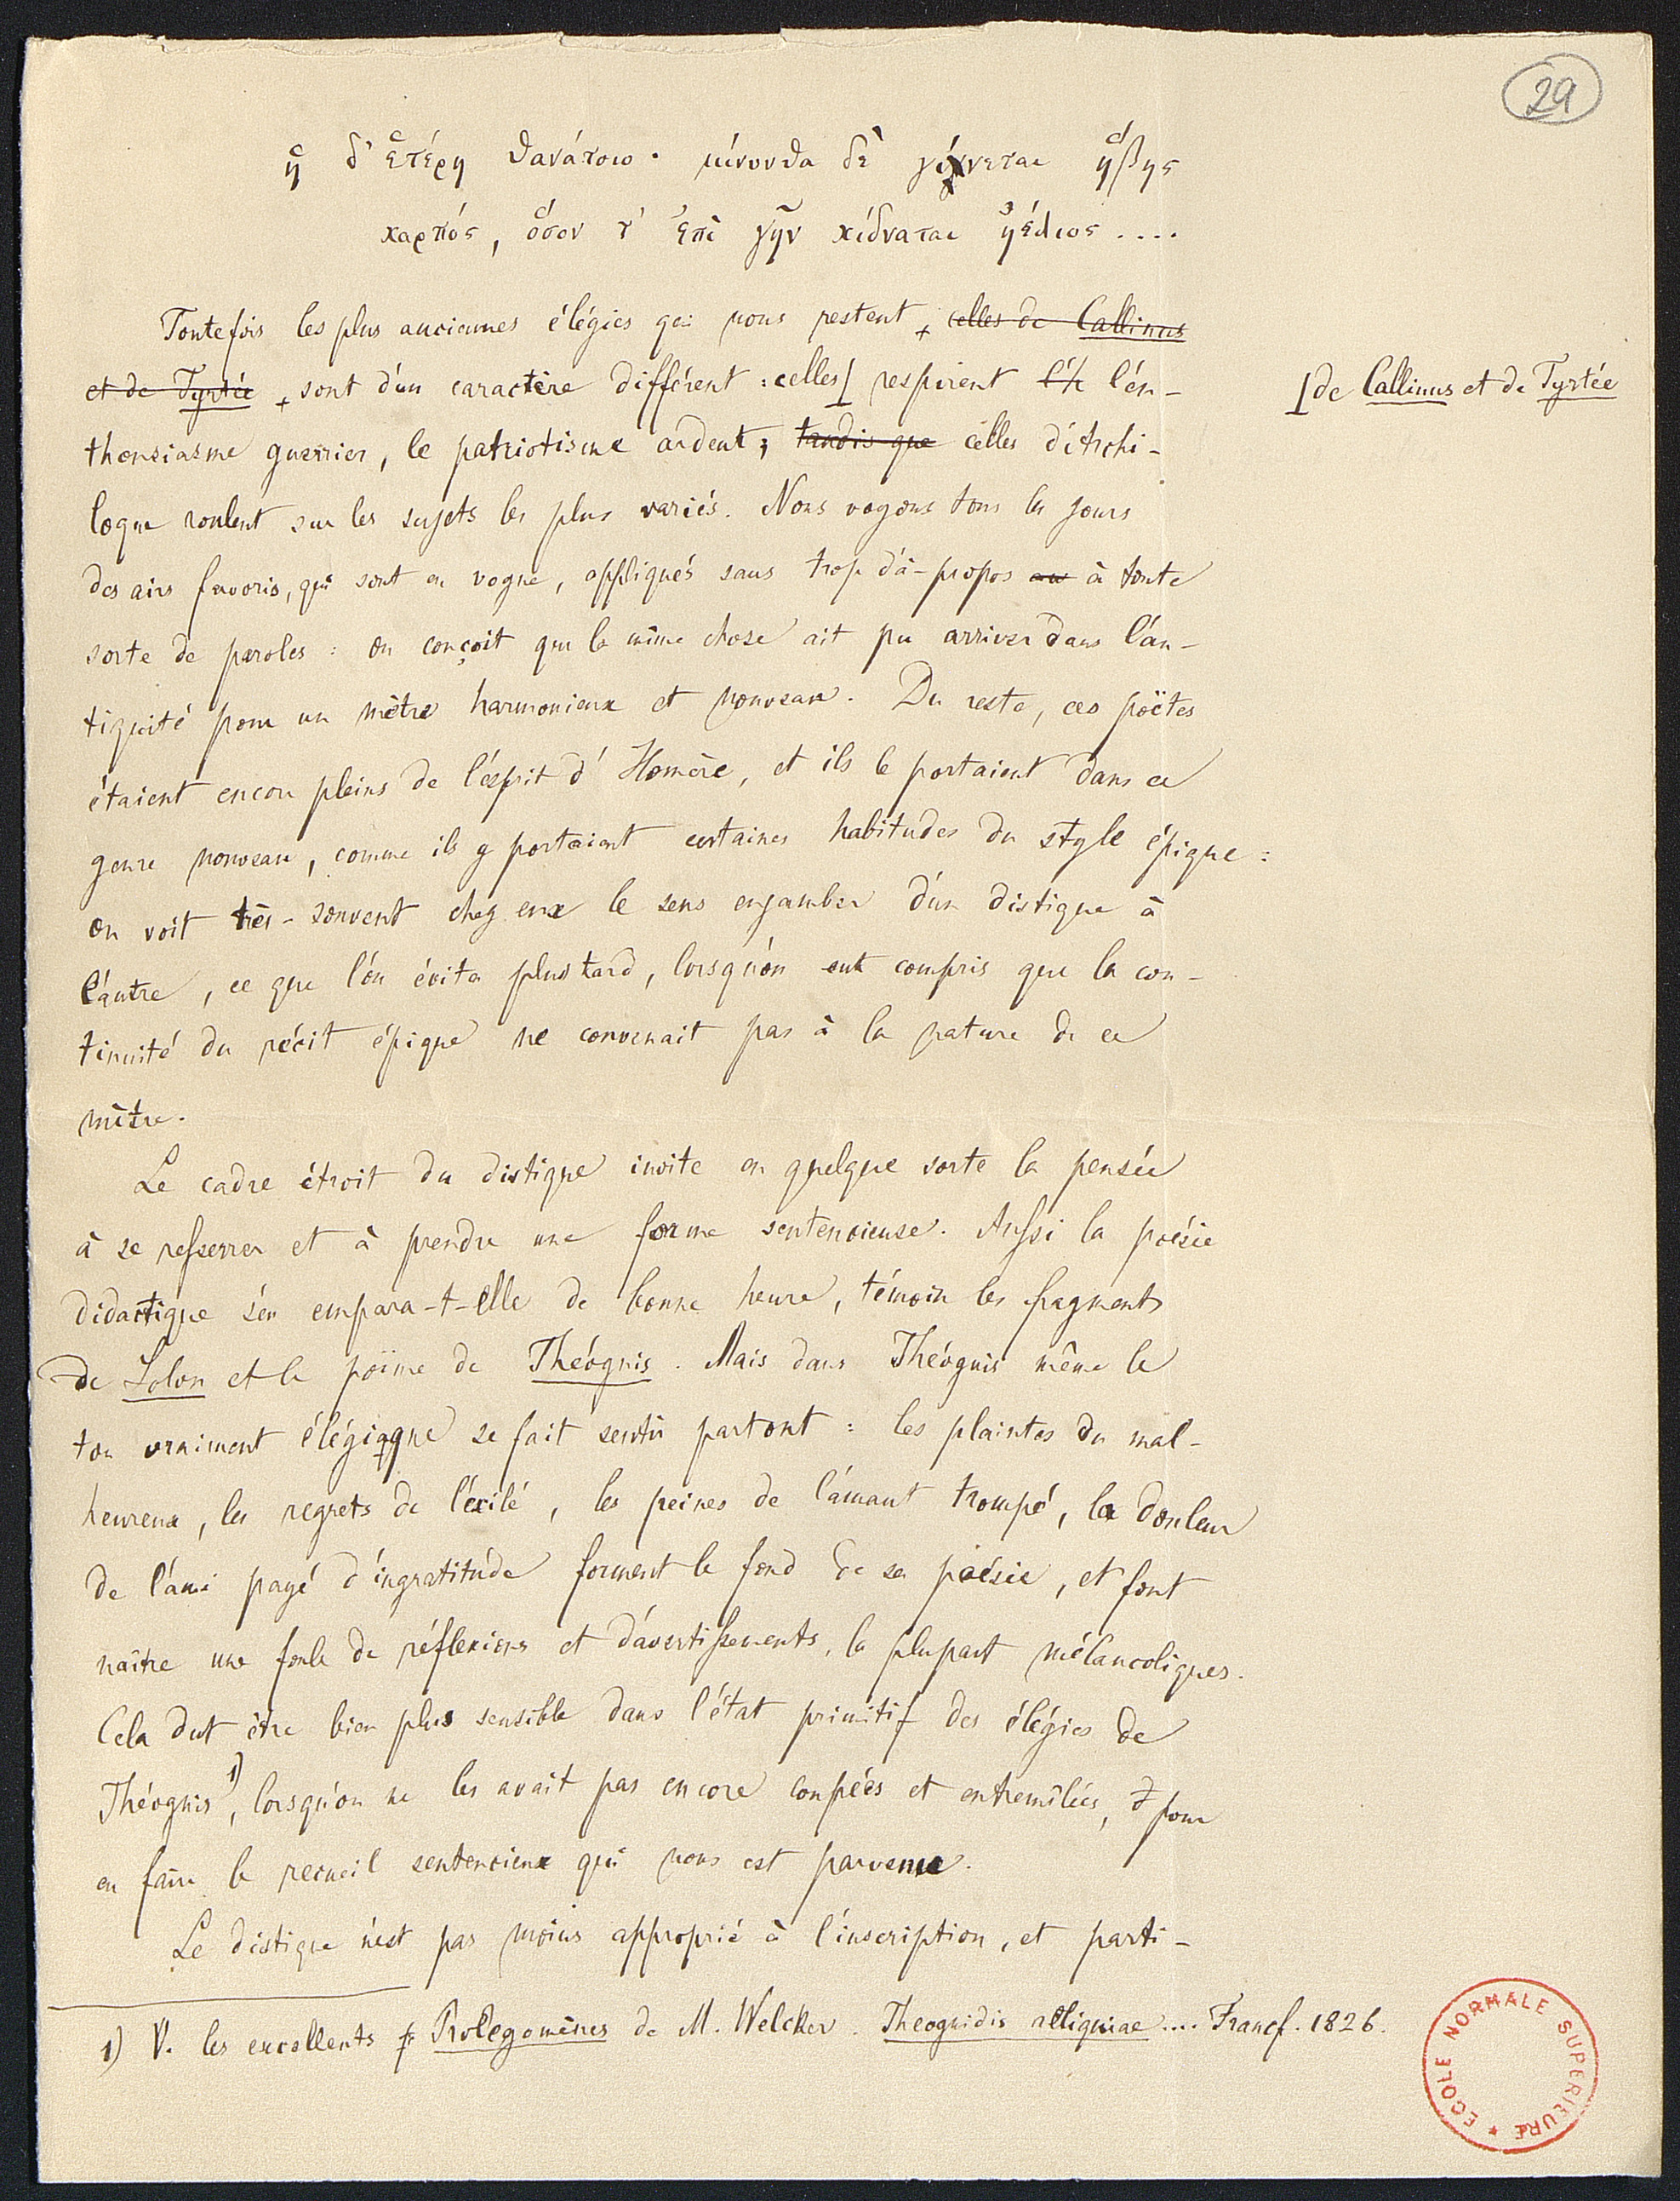 29
ἡ δ' ἑτέρη θανάτοιο· μίνυνθα δὲ γίνεται ἥβης
καρπός, ὅσον τ' ἐπὶ γῆν κίδναται ἠέλιος....
Toutefois les plus anciennes élégies qui nous restent, celles de Callinus
et de Tyrtée, sont d'un caractère différent : celles⌊ respirent l'é l'en-
⌊de Callinus et de Tyrtée
thousiasme guerrier, le patriotisme ardent; tandis que celles d'Archi-
loque roulent sur les sujets les plus variés. Nous voyons tous les jours
des airs favoris, qui sont en vogue, appliqués sans trop d'à-propos au à toute
sorte de paroles : on conçoit que la même chose ait pu arriver dans l'an-
tiquité pour un mètre harmonieux et nouveau. Du reste, ces poëtes
étaient encore pleins de l'esprit d'Homère, et ils le portaient dans ce
genre nouveau, comme ils y portaient certaines habitudes du style épique :
on voit très-souvent chez eux le sens enjamber d'un distique à
l'autre, ce que l'on évita plus tard, lorsqu'on eut compris que la con-
tinuité du récit épique ne convenait pas à la nature de ce
mètre.
Le cadre étroit du distique invite en quelque sorte la pensée
à se resserrer et à prendre une forme sentencieuse. Aussi la poésie
didactique s'en empara-t-elle de bonne heure, témoin les fragments
de Solon et le poëme de Théognis. Mais dans Théognis même le
ton vraiment élégiaque se fait sentir partout : les plaintes du mal-
heureux, les regrets de l'exilé, les peines de l'amant trompé, la douleur
de l'ami payé d'ingratitude forment le fond de sa poésie, et font
naître une foule de réflexions et d'avertissements, la plupart mélancoliques.
Cela dut être bien plus sensible dans l'état primitif des élégies de
Théognis 1), lorsqu'on ne les avait pas encore coupées et entremêlées, pour
en faire le recueil sentencieux qui nous est parvenu.
Le distique n'est pas moins approprié à l'inscription, et parti-
1) V. les excellents Prolegomènes de M. Welcker. Theognidis reliquiae.... Francf. 1826.
ECOLE NORMALE SUPERIEURE